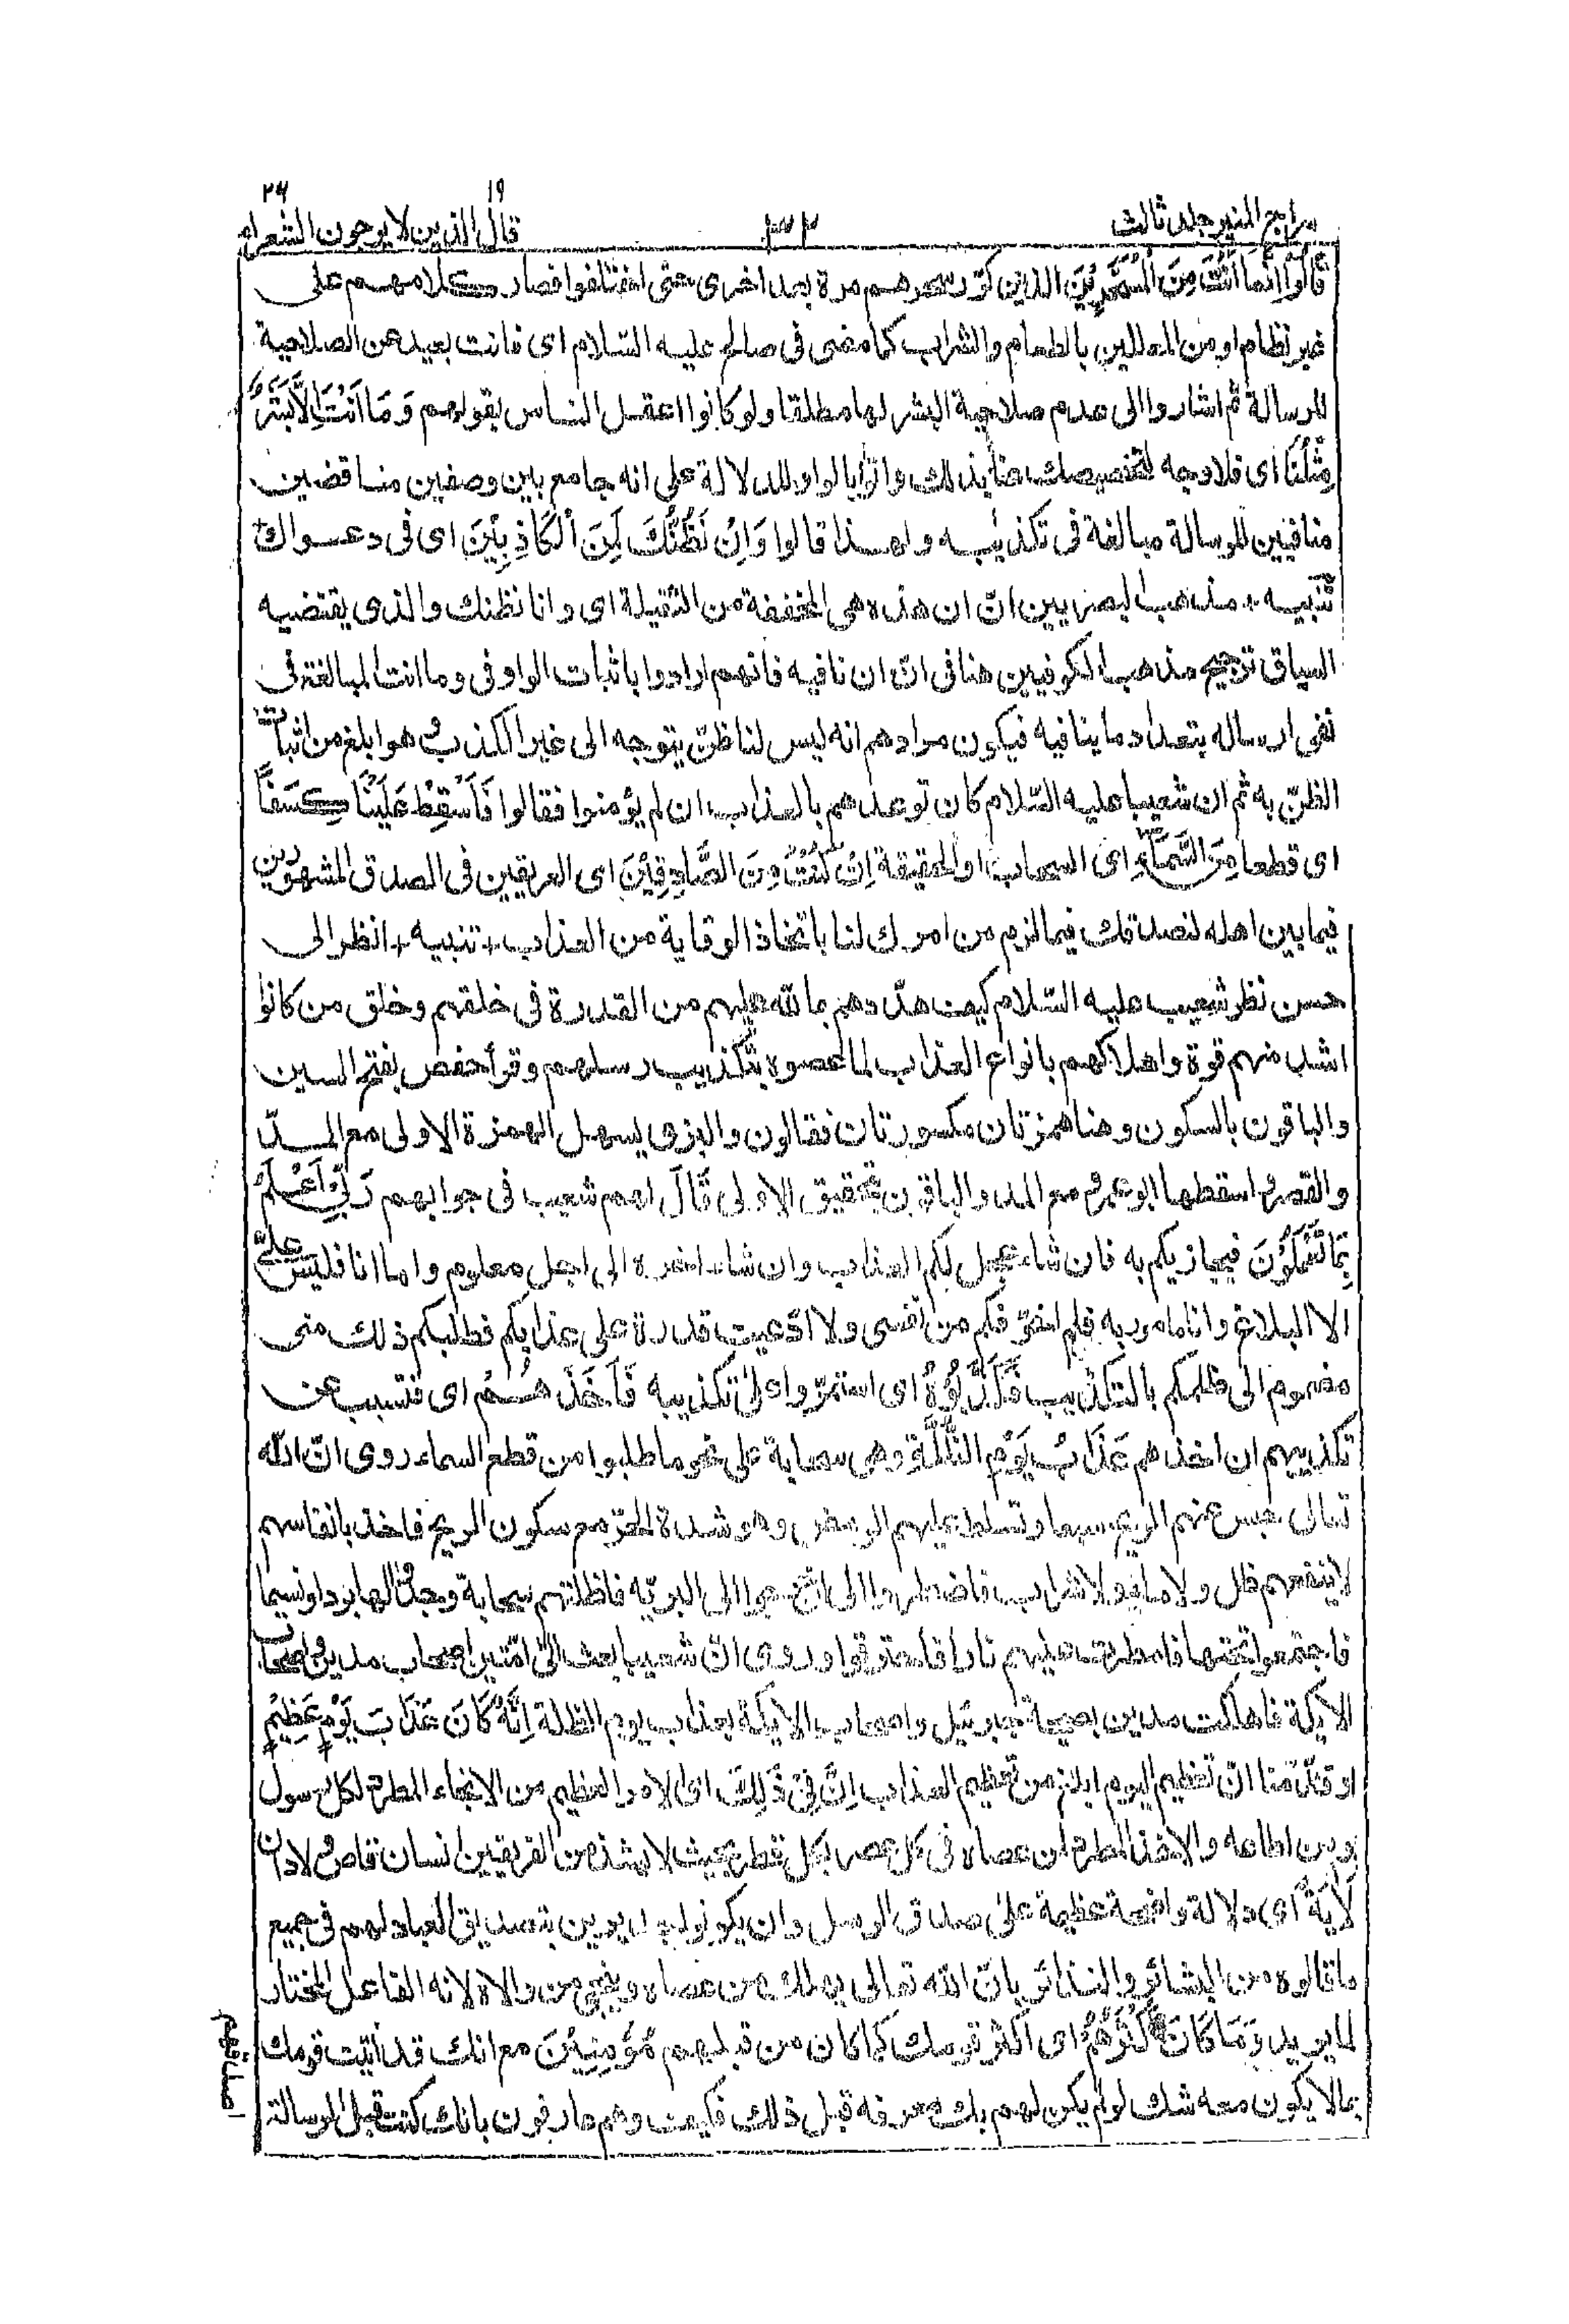 سراج المنير جلد ثالث
٣٢
قال الذين لا يرجون الشعراء
١٩
٢٦
قَالُوْا اِنَّمَا اَنْتَ مِنَ الْمُسَحَّرِيْنَ الذين كرّر سحرهم مرة بعد اخرى حتى اختلفوا فصار كلامهم على
غير نظام او من المعللين بالطعام والشراب كما مضى فى صالح عليه السّلام اى فانت بعيد من الصلاحية
للرسالة ثم اشاروا الى عدم صلاحية البشر لها مطلقا ولو كانوا اعقل الناس بقولهم وَمَا اَنْتَ اِلَّا بَشَرٌ
مِّثْلُنَا اى فلا وجه لتخصيصك عنا بذلك واتوا بالواو للدلالة على انه جامع بين وصفين مناقضين
منافيين للرسالة مبالغة فى تكذيبه ولهذا قالوا وَاِنْ نَظُنُّكَ لَمِنَ الْكَاذِبِيْنَ اى فى دعواك
تنبيه + مذهب البصريين انّ ان هذه هى المخففة من الثقيلة اى وانا نظنك والذى يقتضيه
السياق ترجيح مذهب الكوفيين هنا فى انّ ان نافيه فانهم ارادوا باثبات الواو فى وما انت المبالغة فى
نفى ارساله بتعداد ما ينافيه فيكون مرادهم انه ليس لنا ظنّ يتوجه الى غير الكذب وهو ابلغ من اثبات
الظنّ به ثم ان شعيبا عليه السّلام كان توعدهم بالعذاب ان لم يؤمنوا فقالوا فَاَسْقِطْ عَلَيْنَا كِسَفًا
اى قطعا مِنَ السَّمَآءِ اى السحاب او الحقيقة اِنْ كُنْتَ مِنَ الصَّادِقِيْنَ اى العريقين فى الصدق المشهورين
فيما بين اهله لنصدقك فيما لزم من امرك لنا باتخاذ الوقاية من العذاب + تنبيه + انظر الى
حسن نظر شعيب عليه السّلام كيف هدّدهم بما لله عليهم من القدرة فى خلقهم وخلق من كانوا
اشد منهم قوة واهلاكهم بانواع العذاب لما عصوه بتكذيب رسلهم وقرأ حفص بفتح السين
والباقون بالسكون وهنا همزتان مكسورتان فقالون والبزى يسهل الهمزة الاولى مع المدّ
والقصر واسقطها ابو عمرو مع المد والباقون بتحقيق الاولى قَالَ لهم شعيب فى جوابهم رَبِّىْ اَعْلَمُ
بِمَا تَعْمَلُوْنَ فيجازيكم به فان شاء عجل لكم العذاب وان شاء اخره الى اجل معلوم واما انا فليس علىّ
الا البلاغ وانا مامور به فلم اخوّفكم من نفسى ولا ادّعيت قدرة على عذابكم فطلبكم ذلك منى
مضموم الى ظلمكم بالتكذيب فَكَذَّبُوْهُ اى استمرّوا على تكذيبه فَاَخَذَهُمْ اى فتسبب عن
تكذيبهم ان اخذهم عَذَابُ يَوْمِ الظُّلَّةِ وهى سحابة على نحو ما طلبوا من قطع السماء روى انّ الله
تعالى حبس عنهم الريح سبعا وتسلط عليهم الومد وهو شدة الحرّ مع سكون الريح فاخذ بانفاسهم
لا ينفعهم ظل ولا ماء ولا شراب فاضطروا الى ان خرجوا الى البريّه فاظلتهم سحابة وجدوا لها بردا ونسيما
فاجتمعوا تحتها فامطرت عليهم نارا فاحترقوا وروى انّ شعيبا بعث الى امّتين اصحاب مدين واصحاب
الايكة فاهلكت مدين بصيحة جبرئيل واصحاب الايكة بعذاب يوم الظلة اِنَّهٗ كَانَ عَذَابَ يَوْمٍ عَظِيْمٍ
وقدّمنا انّ تعظيم اليوم ابلغ من تعظيم العذاب اِنَّ فِىْ ذٰلِكَ اى الامر العظيم من الانجاء المطرد لكل رسول
ومن اطاعه والاخذ المطرد لمن عصاه فى كل عصر بكل قطر بحيث لا يشذ من الفريقين انسان قاص ولا دان
لَاٰيَةً اى دلالة واضحة عظيمة على صدق الرسل وان يكونوا جديرين بتصديق العباد لهم فى جميع
ما قالوه من البشائر والنذائر بانّ الله تعالى يهلك من عصاه وينجى من والاه لانه الفاعل المختار
لما يريد وَمَا كَانَ اَكْثَرُهُمْ اى اكثر قومك كما كان من قبلهم مُؤْمِنِيْنَ مع انك قد اتيت قومك
بما لا يكون معه شك لو لم يكن لهم بك معرفه قبل ذلك فكيف وهم عارفون بانك كنت قبل الرسالة